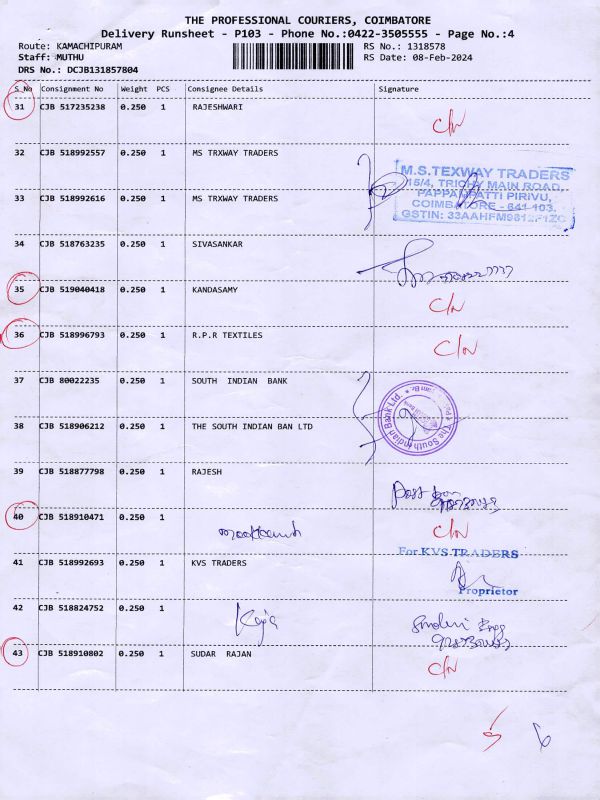 THE PROFESSIONAL COURIERS, COIMBATORE
Delivery Runsheet - P103 - Phone No.:0422-3505555 - Page No.:4
Route: KAMACHIPURAM RS No.: 1318578
Staff: MUTHU RS Date: 08-Feb-2024
DRS No.: DCJB131857804
S_No Consignment No Weight PCS Consignee Details Signature
31 CJB 517235238 0.250 1 RAJESHWARI
C/N
32 CJB 518992557 0.250 1 MS TRXWAY TRADERS
M.S.TEXWAY TRADERS
15/4, TRICHY MAIN ROAD,
PAPPAMPATTI PIRIVU,
COIMBATORE - 641 103.
33 CJB 518992616 0.250 1 MS TRXWAY TRADERS
GSTIN: 33AAHFM9812F1ZC
34 CJB 518763235 0.250 1 SIVASANKAR
35 CJB 519040418 0.250 1 KANDASAMY
C/N
36 CJB 518996793 0.250 1 R.P.R TEXTILES
C/N
37 CJB 80022235 0.250 1 SOUTH INDIAN BANK
The South Indian Bank Ltd.
38 CJB 518906212 0.250 1 THE SOUTH INDIAN BAN LTD
39 CJB 518877798 0.250 1 RAJESH
40 CJB 518910471 0.250 1
C/N
For KVS TRADERS
41 CJB 518992693 0.250 1 KVS TRADERS
Proprietor
42 CJB 518824752 0.250 1
Raja
43 CJB 518910802 0.250 1 SUDAR RAJAN
C/N